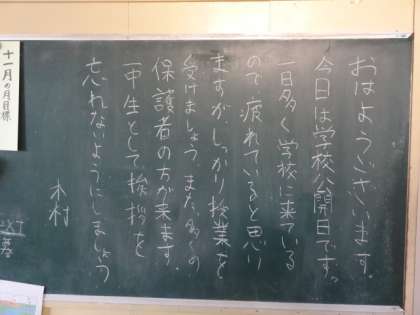 おはようございます。
今日は学校公開日です。
一日多く学校に来ている
ので、疲れていると思い
ますが、しっかり授業を
受けましょう。また、多くの
保護者の方が来ます。
一中生として挨拶を
忘れないようにしましょう
木村
十一月の月目標